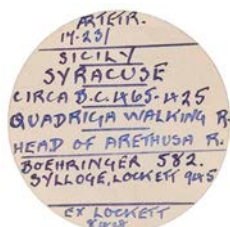 17.231
SICILY
SYRACUSE
CIRCA B.C. 465-425
QUADRIGA WALKING R.
HEAD OF ARETHUSA R.
BOEHRINGER 582.
SYLLOGE, LOCKETT 945
EX LOCKETT